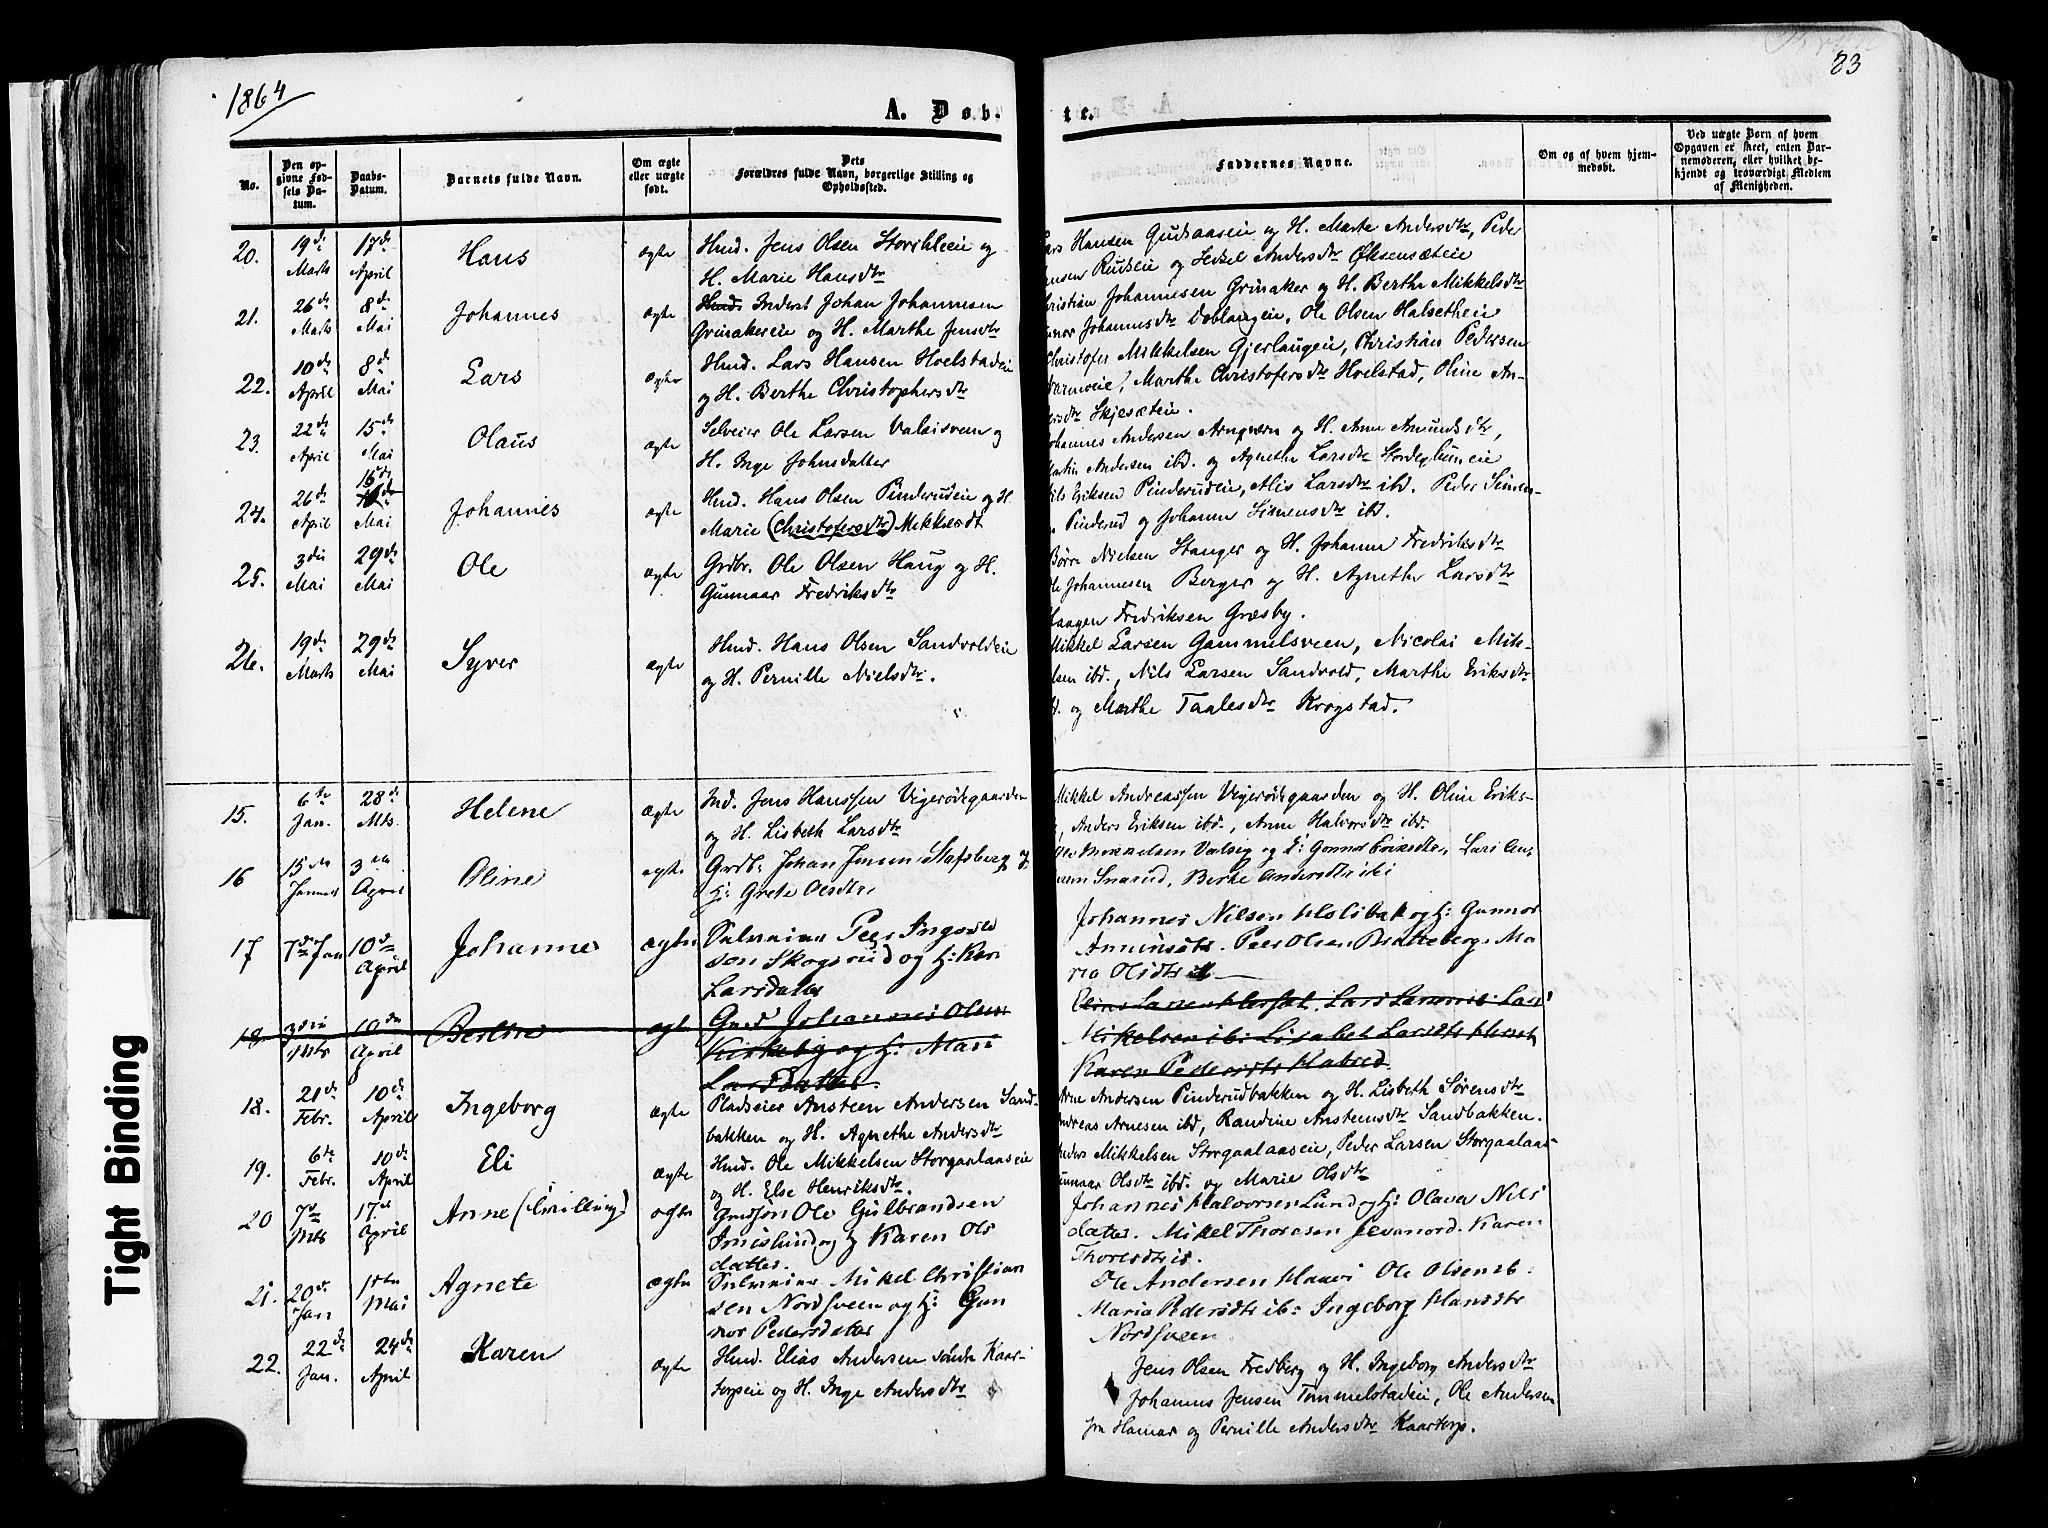 1864
83
A. Døb
te.
No.
Den opgivne Fødsels Datum.
Daabs-Datum.
Barnets fulde Navn.
Om ægte eller uægte født.
Dets Forældres fulde Navn, borgerlige Stilling og Opholdssted.
Faddernes Navne.
Om og af hvem hjemmedøbt.
Ved uægte Børn af hvem Opgaven er skeet, enten Barnemoderen, eller hvilket bekjendt og troværdigt Medlem af Menigheden.
20. 19de Marts 17de April Hans ægte Hmd. Jens Olsen Storihleie og
H. Marie Hansdtr
Lars Hansen Gudsaaseie og H. Marte Andersdtr, Peder
Hansen Rudseie og Andersdtr Øksensæteie
21. 26de Marts 8de Mai Johannes ægte Hmd. Inderst Johan Johannesen
Grinakereie og H. Marthe Jensdtr
Christian Johannesen Grinaker og H. Berthe Mikkelsdtr
Johannesdtr Doblaugeie, Ole Olsen Halsetheie
22. 10de April 8de Mai Lars ægte Hmd. Lars Hansen Hoelstadeie
og H. Berthe Christophersdtr
Christofer Mikkelsen Gjerlaugeie, Christian Pedersen
Marthe Christofersdtr Hoelstad, Oline An-
dersdtr Skjesæteie.
23. 22de April 15de Mai Olaus ægte Selveier Ole Larsen Valsisveen og
H. Inge Johnsdatter
Johannes Andersen Arnqværn og H. Anne Amundsdtr,
Martin Andersen ibd. og Agnethe Larsdtr
24. 26de April 16de Mai Johannes ægte Hmd. Hans Olsen Pinderudeie og H.
Marie (Christofersdtr) Mikkelsdt
Nils Eriksen Pinderudeie, Alis Larsdtr ibd. Peder Simen-
sen Pinderud og Johanne Simensdtr ibd.
25. 3die Mai 29de Mai Ole ægte Grdbr. Ole Olsen Haug og H.
Gunnaar Fredriksdtr
Børre Nielsen Stanger og H. Johanne Fredriksdtr
Ole Johannesen Berger og H. Agnethe Larsdtr
Haagen Fredriksen Græsby.
26. 19de Marts 29de Mai Syver ægte Hmd. Hans Olsen Sandvoldeie
og H. Pernille Nielsdtr.
Mikkel Larsen Gammelsveen, Nicolai Mik-
kelsen ibd., Nils Larsen Sandvold, Marthe Eriksdtr
ibd. og Marthe Taalesdtr Krogstad.
15. 6te Jan. 28de Mts. Helene ægte Ind. Jens Hanssen Vigerödegaarden
og H. Lisbeth Larsdtr
Mikkel Andreassen Vigerödegaarden og H. Oline Eriks-
Anders Eriksen ibd., Anne Halvorsdtr ibd.
16 15de Januar 3die April Oline ægte Grdb. Johan Jensen Stafsberg og
H: Grete Olsdtr
Ole Mikkelsen Valsig og H: Gunnor Eriksdtr, Lars
Snarud, Berte Andersdtr ibi
17 7de Jan 10de April Johanne ægte Selveier Peer Ingvold
sen Skogsrud og H: Kari
Larsdatter
Johannes Nilsen Holsbak og H: Gunnor
Peer Olsen Bratteberg. Ma
ria Olsdtr
18. 3die Mts 10de April Berthe ægte Grd Johannes Olsen
Kirkeby og H: Mari
Larsdatter
Mikelsen ib: Lisabet Larsdtr
Karen Pedersdtr
18. 21de Febr. 10de April Ingeborg ægte Pladseier Ansteen Andersen Sand-
bakken og H. Agnethe Andersdtr
Arne Andersen Pinderudbakken og H. Lisbeth Sørensdtr
Andreas Arnesen ibd, Randine Ansteensdtr Sandbakken.
19. 6te Febr. 10de April Eli ægte Hmd. Ole Mikkelsen Storgaalaaseie
og H. Else Henriksdtr.
Anders Mikkelsen Storgaalaaseie, Peder Larsen Storgaalaas-
Gunnaar Olsdtr ibd. og Marie Olsdtr
20 7de Mts 17de April Anne (tvilling) ægte Gmdsøn Ole Gulbrandsen
Imislund og H Karen Ols
datter.
Johannes Halvorsen Lund og H: Olava Nils
datter. Mikel Thoresen Jevanord. Karen
Thoresdtr ib
21. 20de Jan 1ste Mai Agnete ægte Selveier Mikel Christian
sen Nordsveen og H: Gun
nor Pedersdatter
Ole Andersen Ole Olsen ib.
Maria Pedersdtr ib: Ingeborg Hansdtr
Nordsveen
22. 22de Jan. 24de April Karen ægte Hmd. Elias Andersen søndre Kaar-
torpseie og H. Inge Andersdtr
Jens Olsen Fredberg og H. Ingeborg Andersdtr
Johannes Jensen Tommelstadeie, Ole Andersen
fra Hamar og Pernille Andersdtr Kaartorp.
Tight Binding